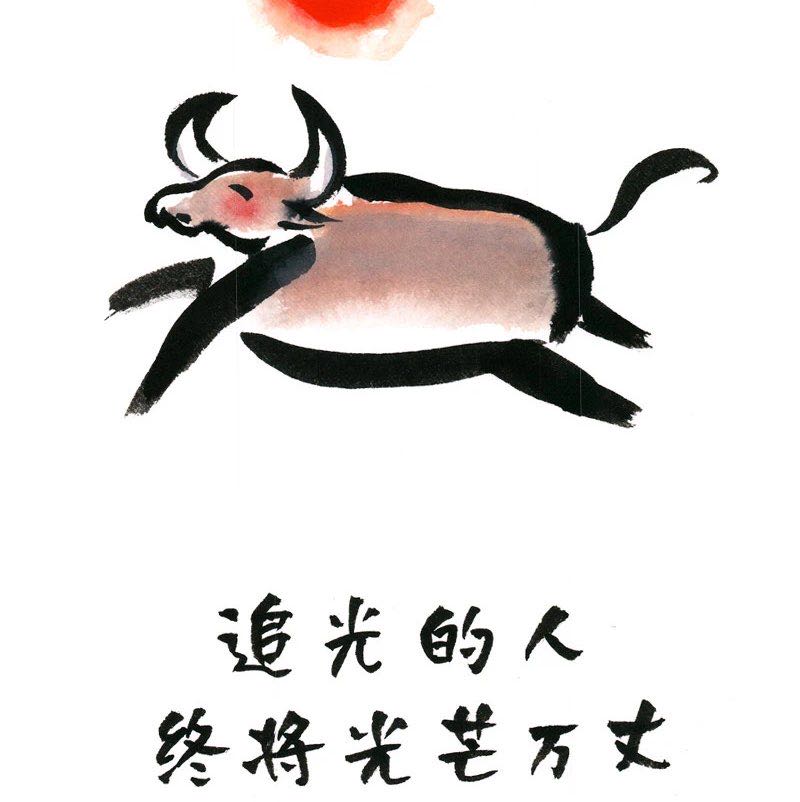 追光的人
终将光芒万丈